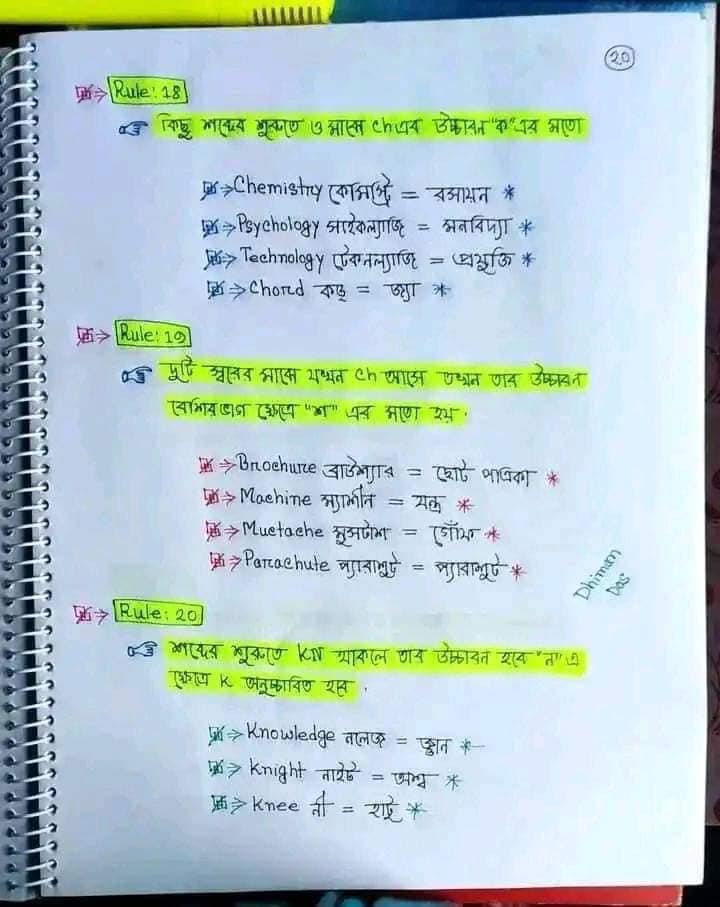 20
Rule: 18
কিছু শব্দের শুরুতে ও মাঝে ch এর উচ্চারন "ক" এর মতো
Chemistry কেমিস্ট্রি = রসায়ন *
Psychology সাইকল্যাজি = মনবিদ্যা *
Technology টেকনল্যাজি = প্রযুক্তি *
Chord কড্ = জ্যা *
Rule: 19
দুটি স্বরের মাঝে যখন ch আসে তখন তার উচ্চারন
বেশিরভাগ ক্ষেত্রে "শ" এর মতো হয়.
Brochure ব্রাউশ্যার = ছোট পত্রিকা *
Machine ম্যাশীন = যন্ত্র *
Mustache মুসটাশ = গোঁফ *
Parachute প্যারাশুট = প্যারাশুট *
Dhiman
Das
Rule: 20
শব্দের শুরুতে KN থাকলে তার উচ্চারন হবে "ন" এ
ক্ষেত্রে K অনুচ্চারিত হবে.
Knowledge নলেজ = জ্ঞান *
Knight নাইট = অশ্ব *
Knee নী = হাটু *